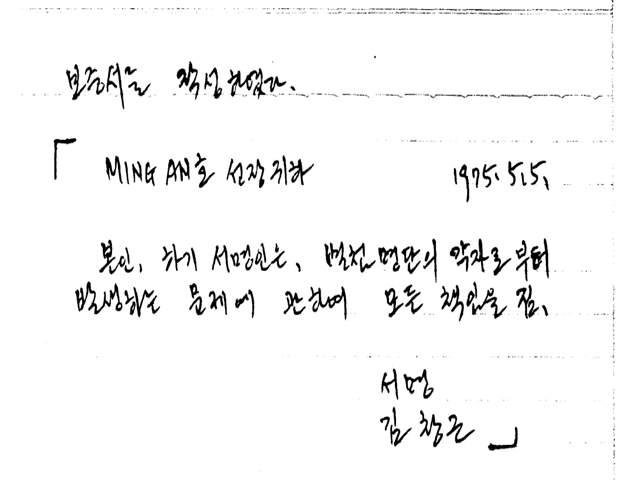 보증서를 작성하였다.
「 MING AN호 선장귀하 1975. 5. 5.
본인, 하기 서명인은, 별첨 명단의 약자로부터
발생하는 문제에 관하여 모든 책임을 짐.
서명
김창근 」